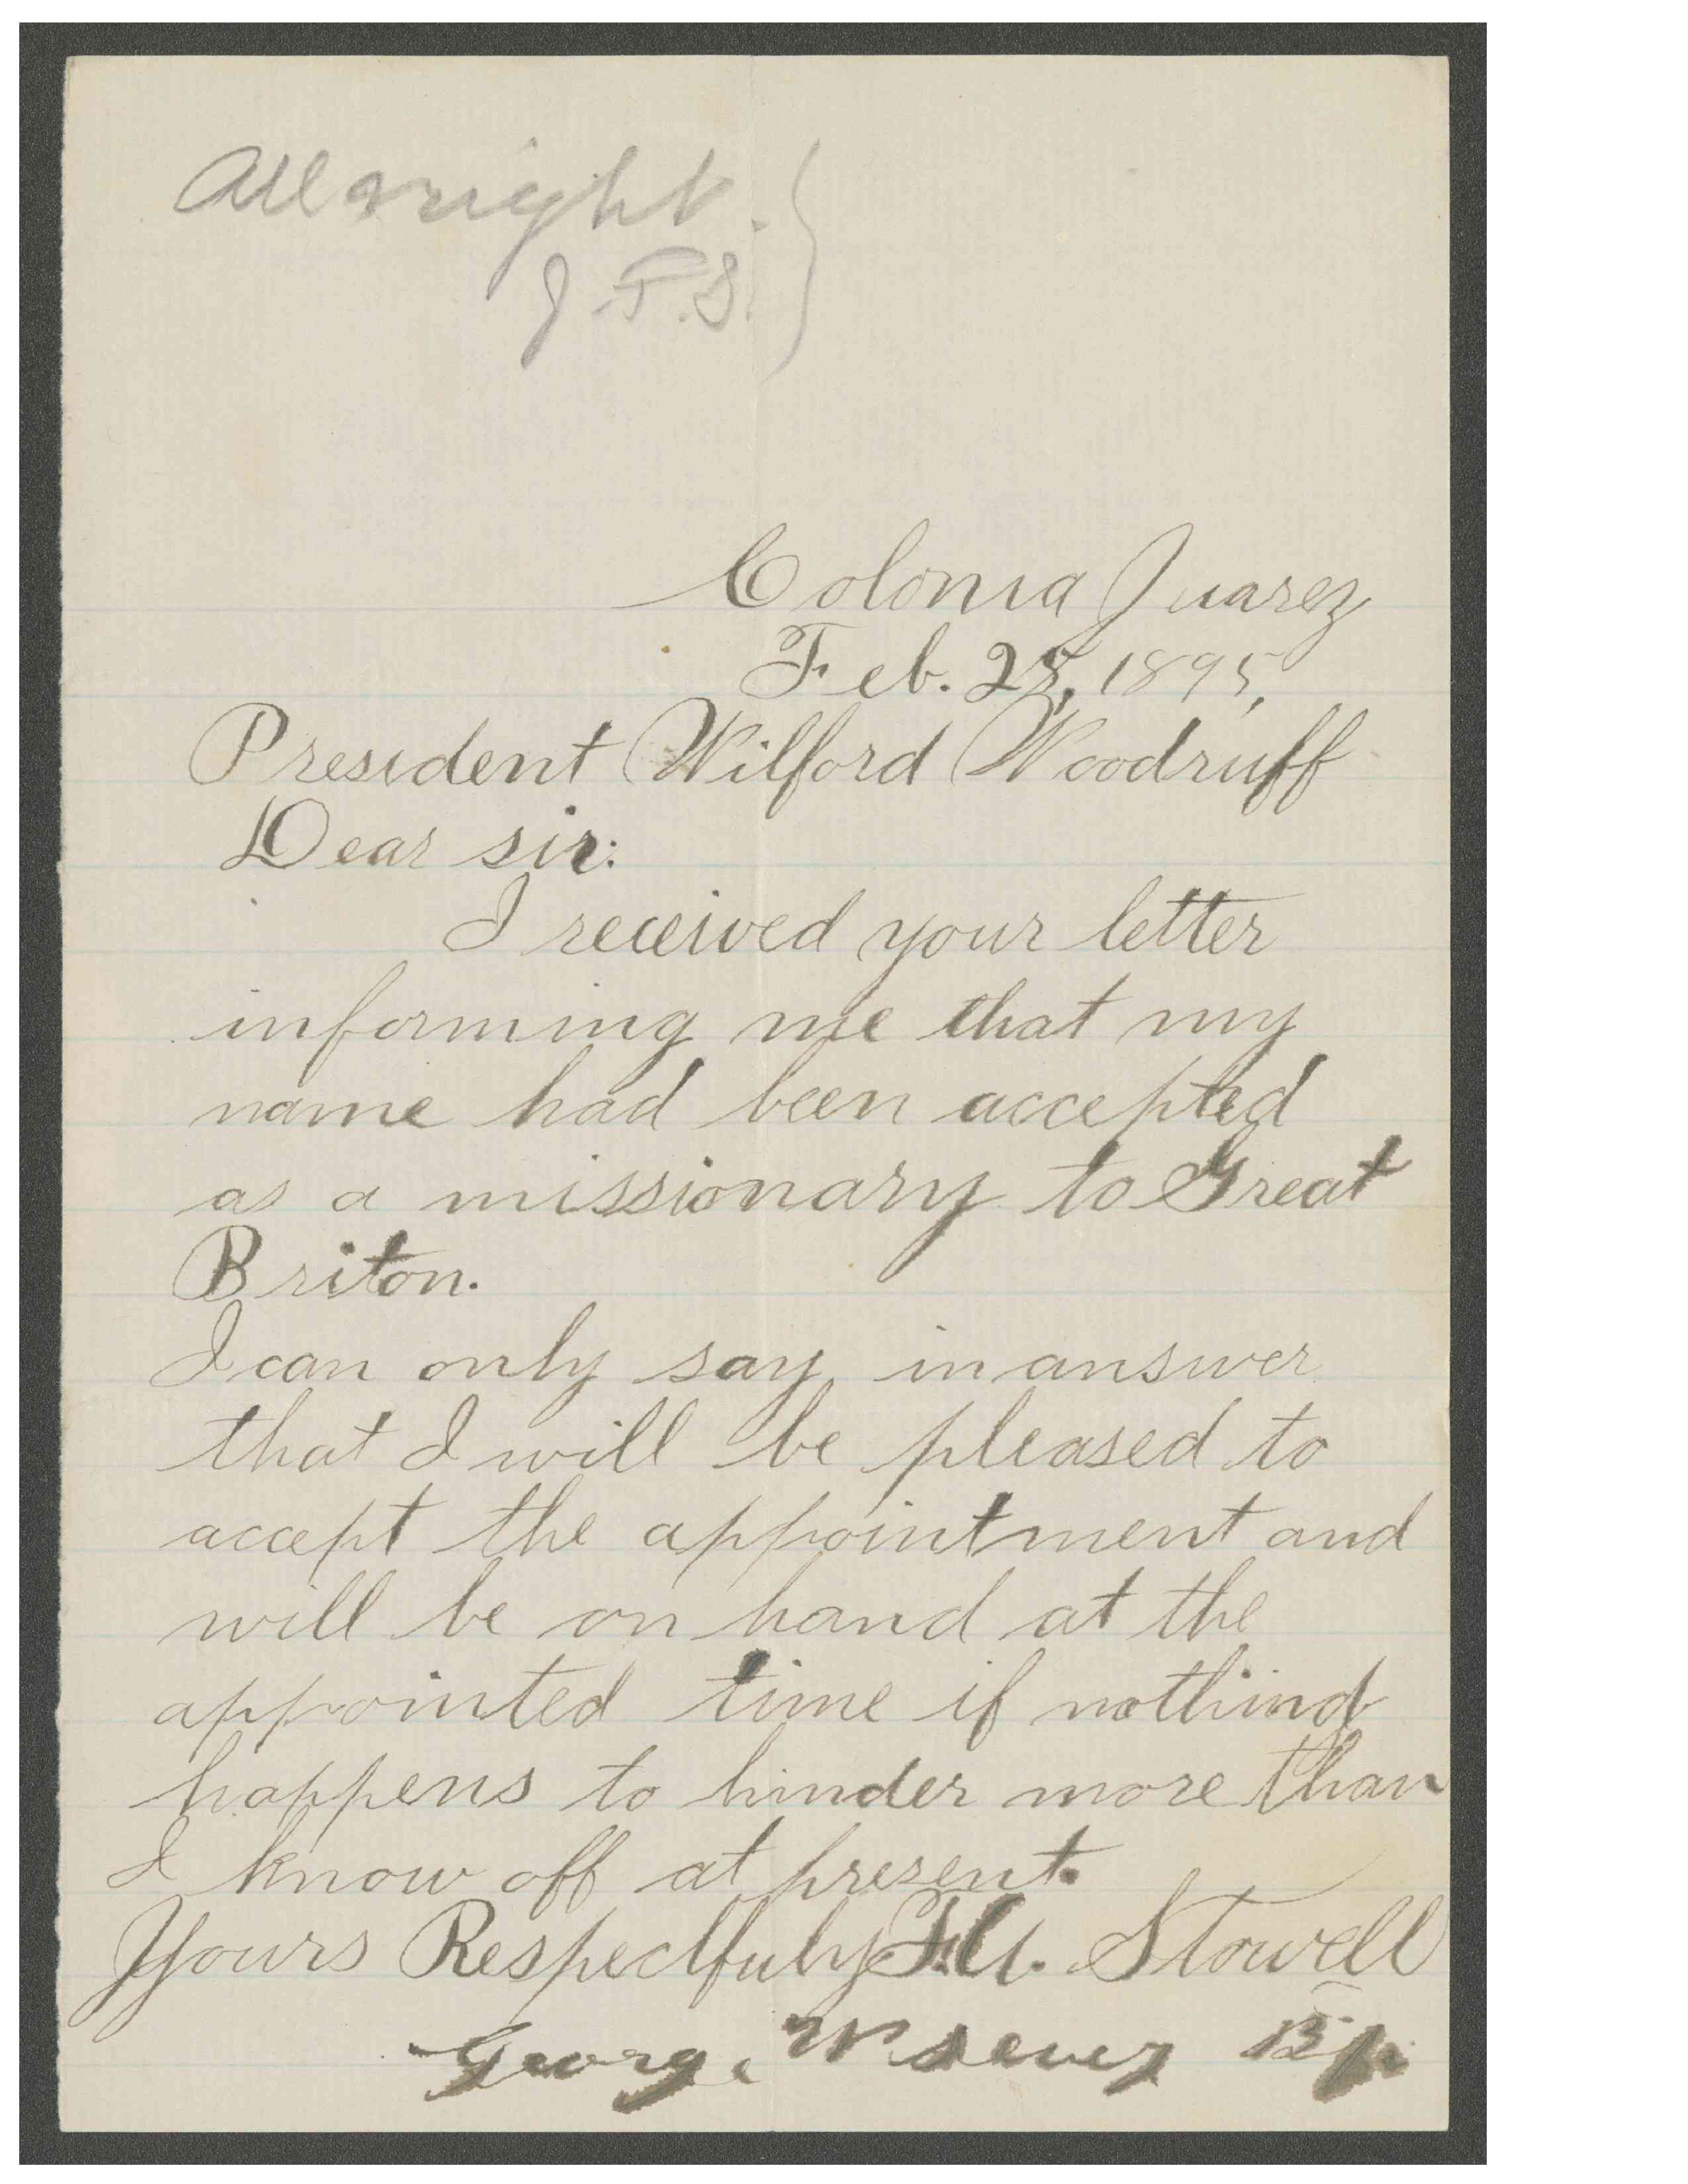 All right.
J.F.S.
Colonia Juarez
Feb. 25, 1895,
President Wilford Woodruff
Dear sir:
I received your letter
informing me that my
name had been accepted
as a missionary to Great
Briton.
I can only say in answer
that I will be pleased to
accept the appointment and
will be on hand at the
appointed time if nothind
happens to hinder more than
I know off at present.
Yours Respectfuly F.A. Stowell
George W Sevey Bp